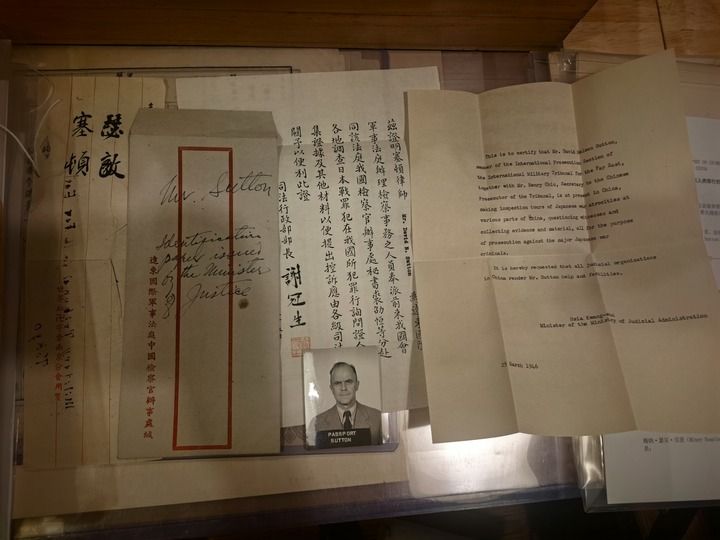 瑟敦
塞頓
Mr. Sutton
Identification
paper issued
by the Minister
of Justice
遠東國際軍事法庭中國檢察官辦事處緘
茲證明塞頓律師
軍事法庭辦理檢察事務之人員奉派前來我國會
同該法庭我國檢察官辦事處秘書裘劭恒等分赴
各地調查日本戰罪犯在我國所犯罪行詢問證人
集證據及其他材料以便提出控訴應由各級司
關予以便利此證
司法行政部部長 謝冠生
PASSPORT
SUTTON
This is to certify that Mr. David Nelson Sutton,
member of the International Prosecution Section of
the International Military Tribunal for the Far East,
together with Mr. Henry Chiu, Secretary to the Chinese
Prosecutor of the Tribunal, is at present in China,
making inspection tours of Japanese war atrocities at
various parts of China, questioning witnesses and
collecting evidence and material, all for the purpose
of prosecution against the major Japanese war
criminals.
It is hereby requested that all judicial organizations
in China render Mr. Sutton help and facilities.
Hsia Kwangsheng
Minister of the Ministry of Judicial Administration
March 1946